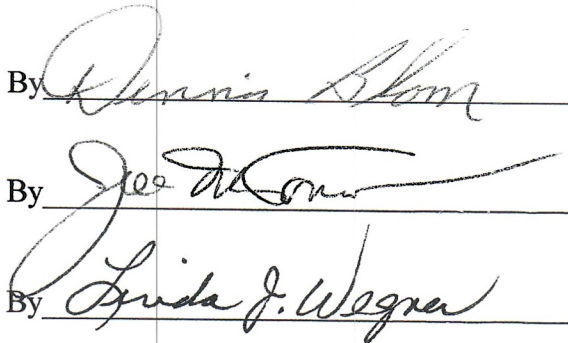 By Dennis Blom
By Joe
By Linda J. Wegner